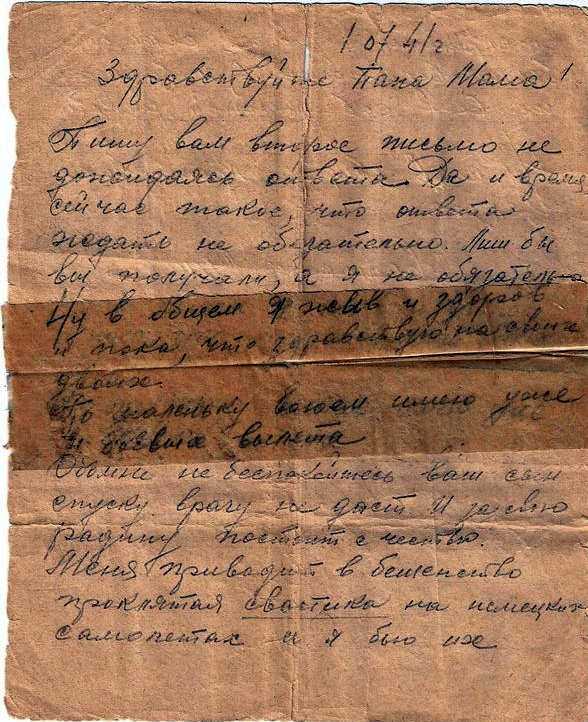 1 07 41 г
Здравствуйте Папа Мама!
Пишу вам второе письмо не
дожидаясь ответа. Да и время
сейчас такое, что ответа
ждать не обезательно. Лиш бы
вы получали, а я не обязательно
Ну в общем Я жыв и здоров
и пока, что здравствую на своих
двоих.
По маленьку воюем имею уже
4 боевых вылета
Обо мне не беспокойтесь ваш сын
спуску врагу не даст и за свою
радину постоит с честью.
Меня приводит в бешенство
проклятая свастика на немецких
самолетах и я бью их